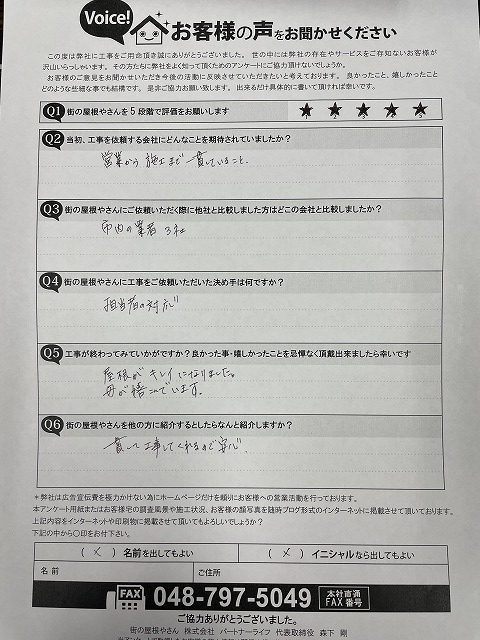 Voice!
お客様の声をお聞かせください
この度は弊社に工事をご用命頂き誠にありがとうございました。世の中には弊社の存在やサービスをご存知ないお客様が
沢山いらっしゃいます。その方たちに弊社をよく知って頂くためのアンケートにご協力頂けないでしょうか。
お客様のご意見をお聞かせいただき今後の活動に反映させていただきたいと考えております。良かったこと、嬉しかったこと
どのような些細な事でも結構です。是非ご協力お願い致します。出来るだけ具体的に書いて頂ければ幸いです。
Q1 街の屋根やさんを5段階で評価をお願いします ★ ★ ★ ★ ★
Q2 当初、工事を依頼する会社にどんなことを期待されていましたか?
営業から施工まで一貫していること、
Q3 街の屋根やさんにご依頼いただく際に他社と比較しました方はどこの会社と比較しましたか?
市内の業者 3社
Q4 街の屋根やさんに工事をご依頼いただいた決め手は何ですか?
担当者の対応
Q5 工事が終わってみていかがですか?良かった事・嬉しかったことを忌憚なく頂戴出来ましたら幸いです
屋根がキレイになりました。
母が喜こんでいます。
Q6 街の屋根やさんを他の方に紹介するとしたらなんと紹介しますか?
一貫して工事してくれるので安心。
*弊社は広告宣伝費を極力かけない為にホームページだけを頼りにお客様への営業活動を行っております。
本アンケート用紙またはお客様宅の調査風景や施工状況、お客様の顔写真を随時ブログ形式のインターネットに掲載させて頂いております。
上記内容をインターネットや印刷物に掲載させて頂いてもよろしいでしょうか?
下記の中から〇印をお付下さい。
( × ) 名前を出してもよい ( × ) イニシャルなら出してもよい
名前 ご住所
FAX 048-797-5049 本社直通 FAX番号
ご協力ありがとうございました。
街の屋根やさん 株式会社 パートナーライフ 代表取締役 森下 剛